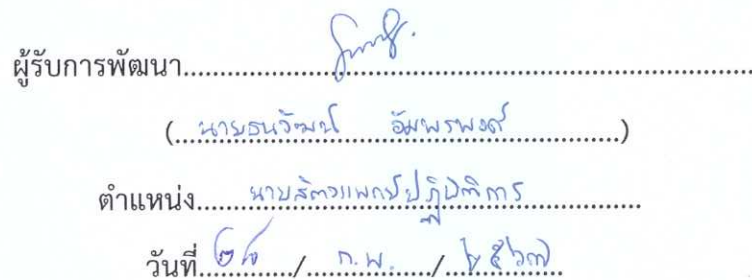 ผู้รับการพัฒนา
(นายธนวัฒน์ อัมพรพงศ์)
ตำแหน่ง นายสัตวแพทย์ปฏิบัติการ
วันที่ / ก.พ. / ๒๕๖๗